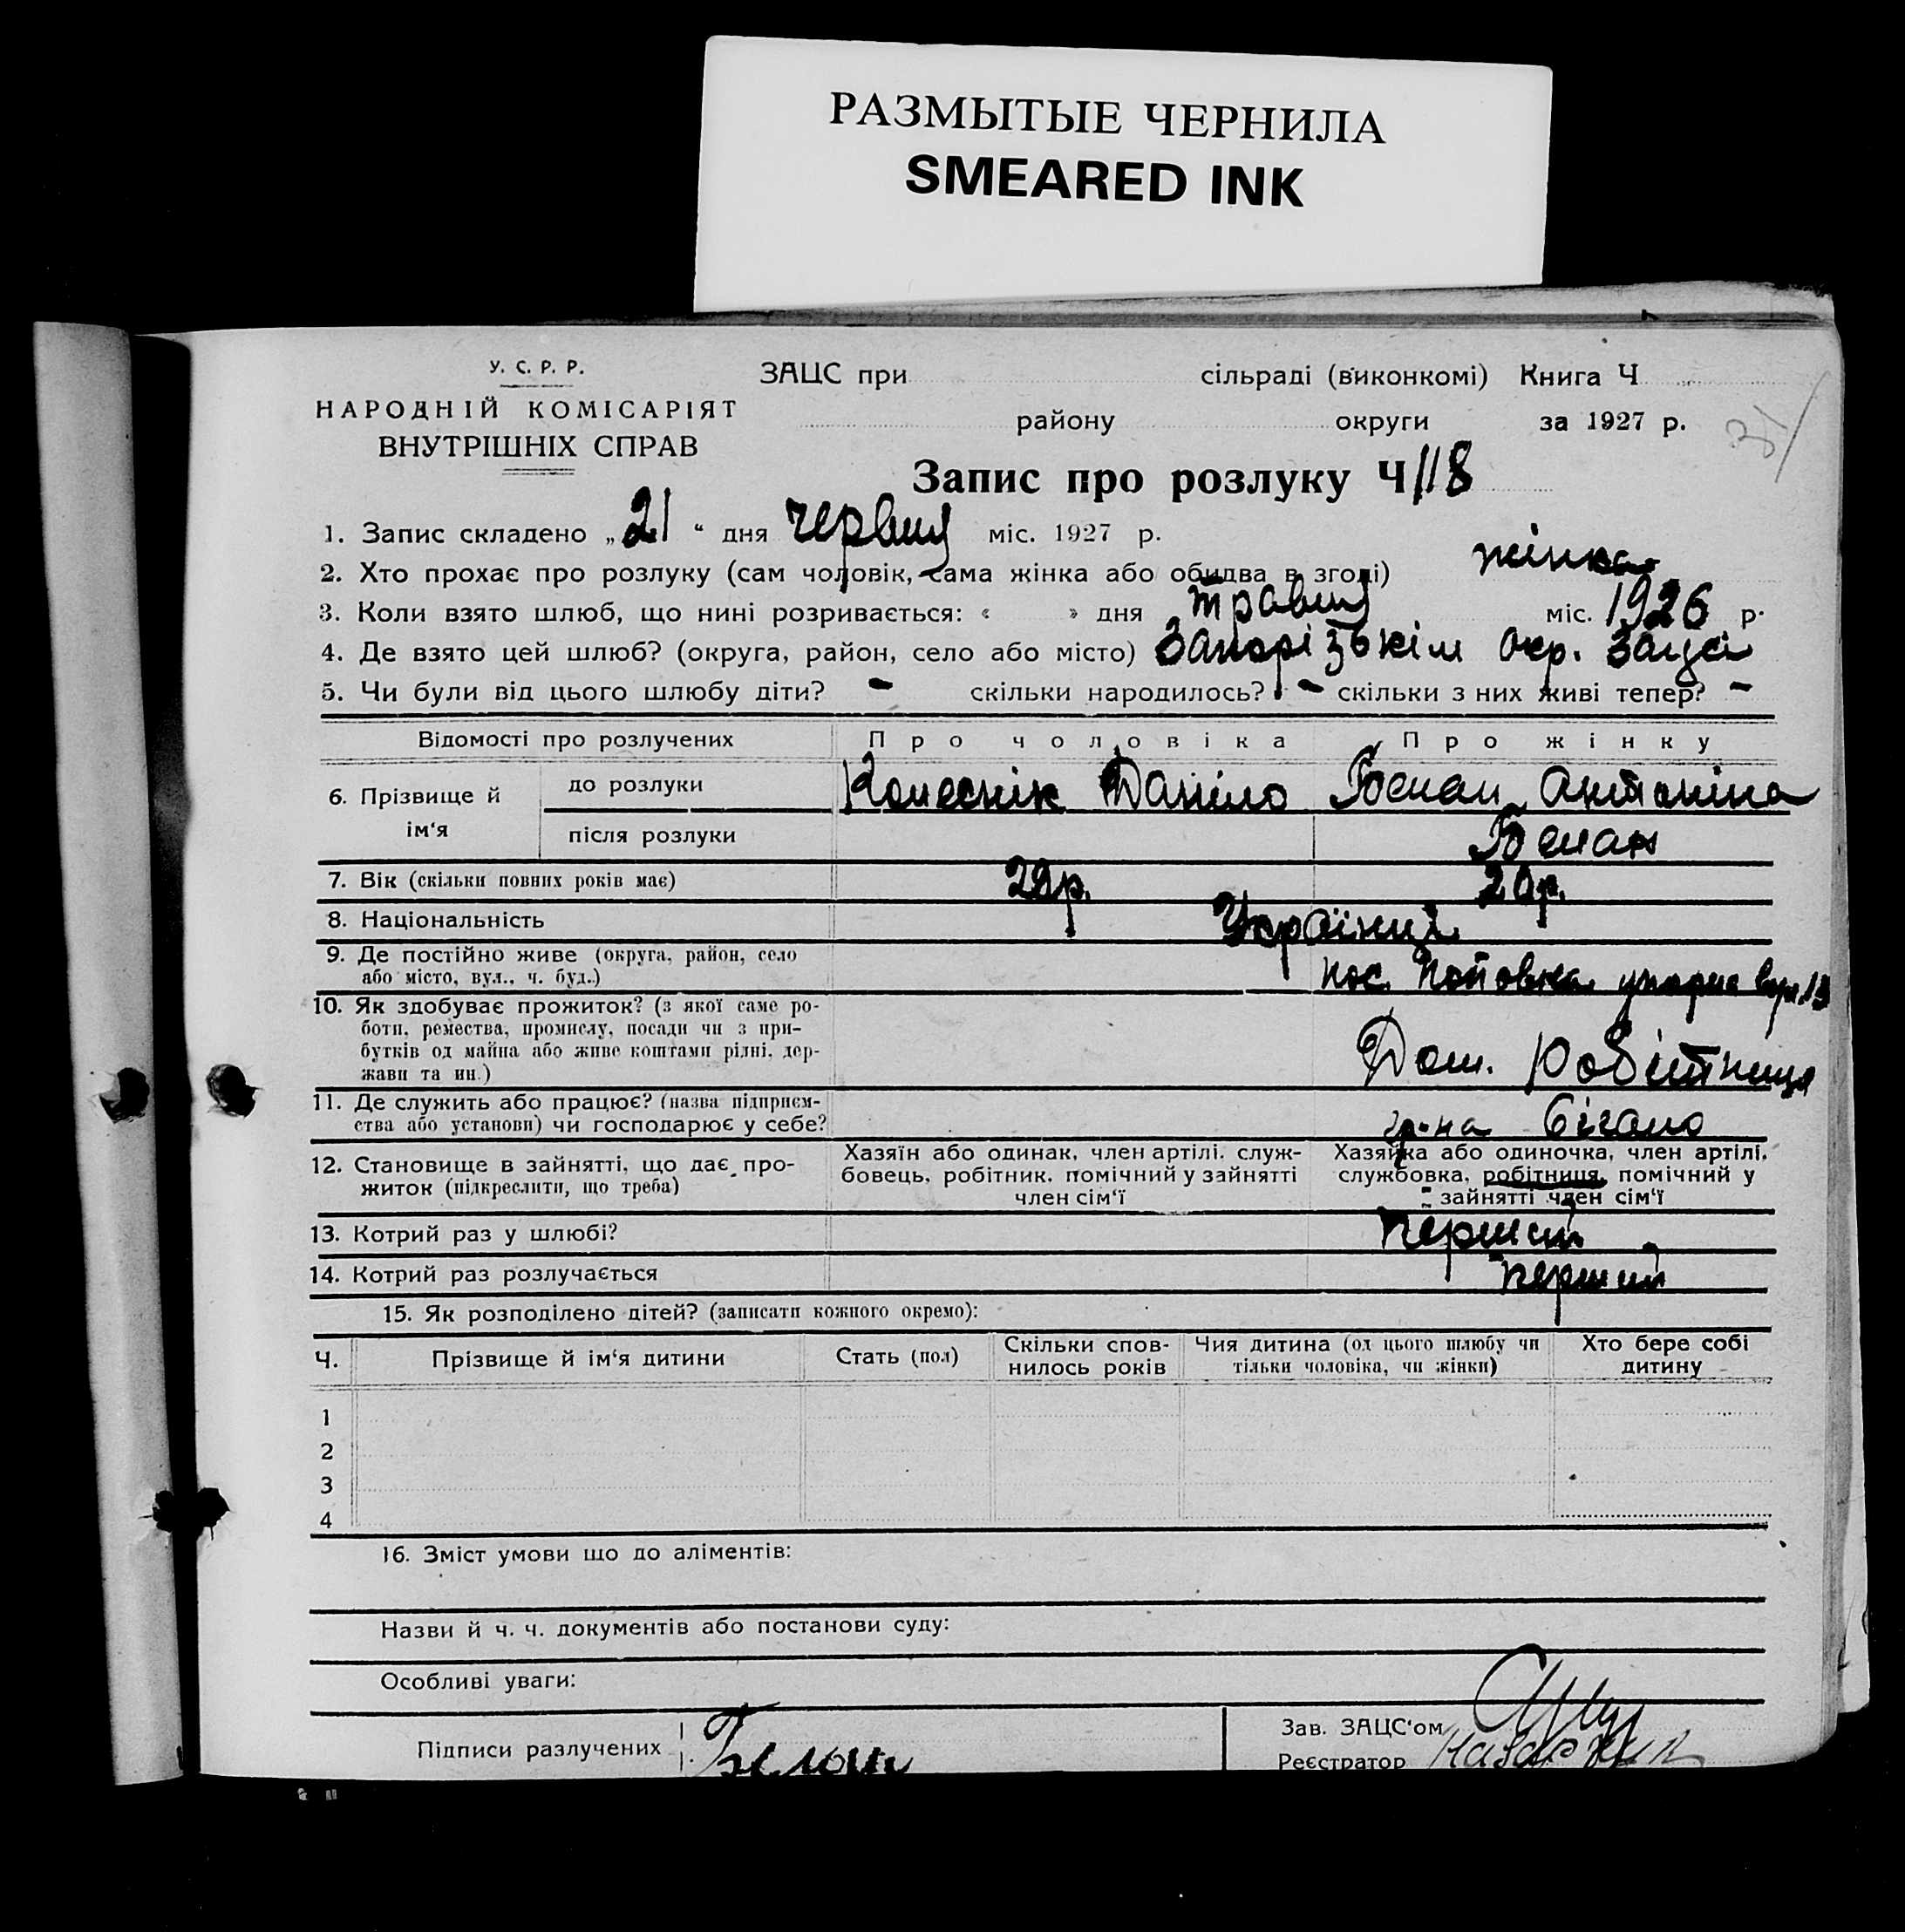 РАЗМЫТЫЕ ЧЕРНИЛА
SMEARED INK
У. С. Р. Р.
НАРОДНІЙ КОМІСАРІЯТ
ВНУТРІШНІХ СПРАВ
ЗАЦС при сільраді (виконкомі) Книга Ч
району округи за 1927 р.
31
Запис про розлуку Ч 118
1. Запис складено „21“ дня червня міс. 1927 р.
2. Хто прохає про розлуку (сам чоловік, сама жінка або обидва в згоді) жінка
3. Коли взято шлюб, що нині розривається: « » дня травня міс. 1926 р.
4. Де взято цей шлюб? (округа, район, село або місто) Запорізькім Окр. Загсі
5. Чи були від цього шлюбу діти? - скільки народилось? - скільки з них живі тепер? -
Відомості про розлучених Про чоловіка Про жінку
6. Прізвище й ім‘я до розлуки Колеснік Даніло Белан Антаніна
після розлуки Белан
7. Вік (скільки повних років має) 20р.
8. Національність Українці
9. Де постійно живе (округа, район, село
або місто, вул., ч. буд.) пос.
10. Як здобуває прожиток? (з якої саме ро-
боти, ремества, промислу, посади чи з при-
бутків од майна або живе коштами рідні, дер-
жави та ин.) Дом. Робітниця
11. Де служить або працює? (назва підприєм-
ства або установи) чи господарює у себе? гр-на
12. Становище в зайнятті, що дає про-
житок (підкреслити, що треба)
Хазяїн або одинак, член артілі, служ-
бовець, робітник, помічний у зайнятті
член сім‘ї
Хазяйка або одиночка, член артілі,
службовка, робітниця, помічний у
зайнятті член сім‘ї
13. Котрий раз у шлюбі? Перший
14. Котрий раз розлучається перший
15. Як розподілено дітей? (записати кожного окремо):
Ч. Прізвище й ім‘я дитини Стать (пол) Скільки спов-
нилось років Чия дитина (од цього шлюбу чи
тільки чоловіка, чи жінки) Хто бере собі
дитину
1
2
3
4
16. Зміст умови що до аліментів:
Назви й ч. ч. документів або постанови суду:
Особливі уваги:
Підписи разлучених Белан
Зав. ЗАЦС‘ом
Реєстратор